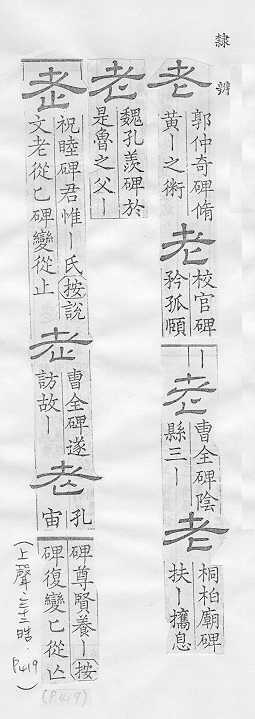 隸
辨
老
郭仲奇碑脩
黃｜之術
老
校官碑
矜孤頤
｜
老
曹全碑陰
縣三｜
老
桐柏廟碑
扶｜攜息
老
魏孔羨碑於
是魯之父｜
老
祝睦碑君惟｜氏按說
文老從匕碑變從止
老
曹全碑遂
訪故｜
老
孔
宙
碑尊賢養｜按
碑復變匕從
(上聲.三十二皓.
P.419)
(P.419)